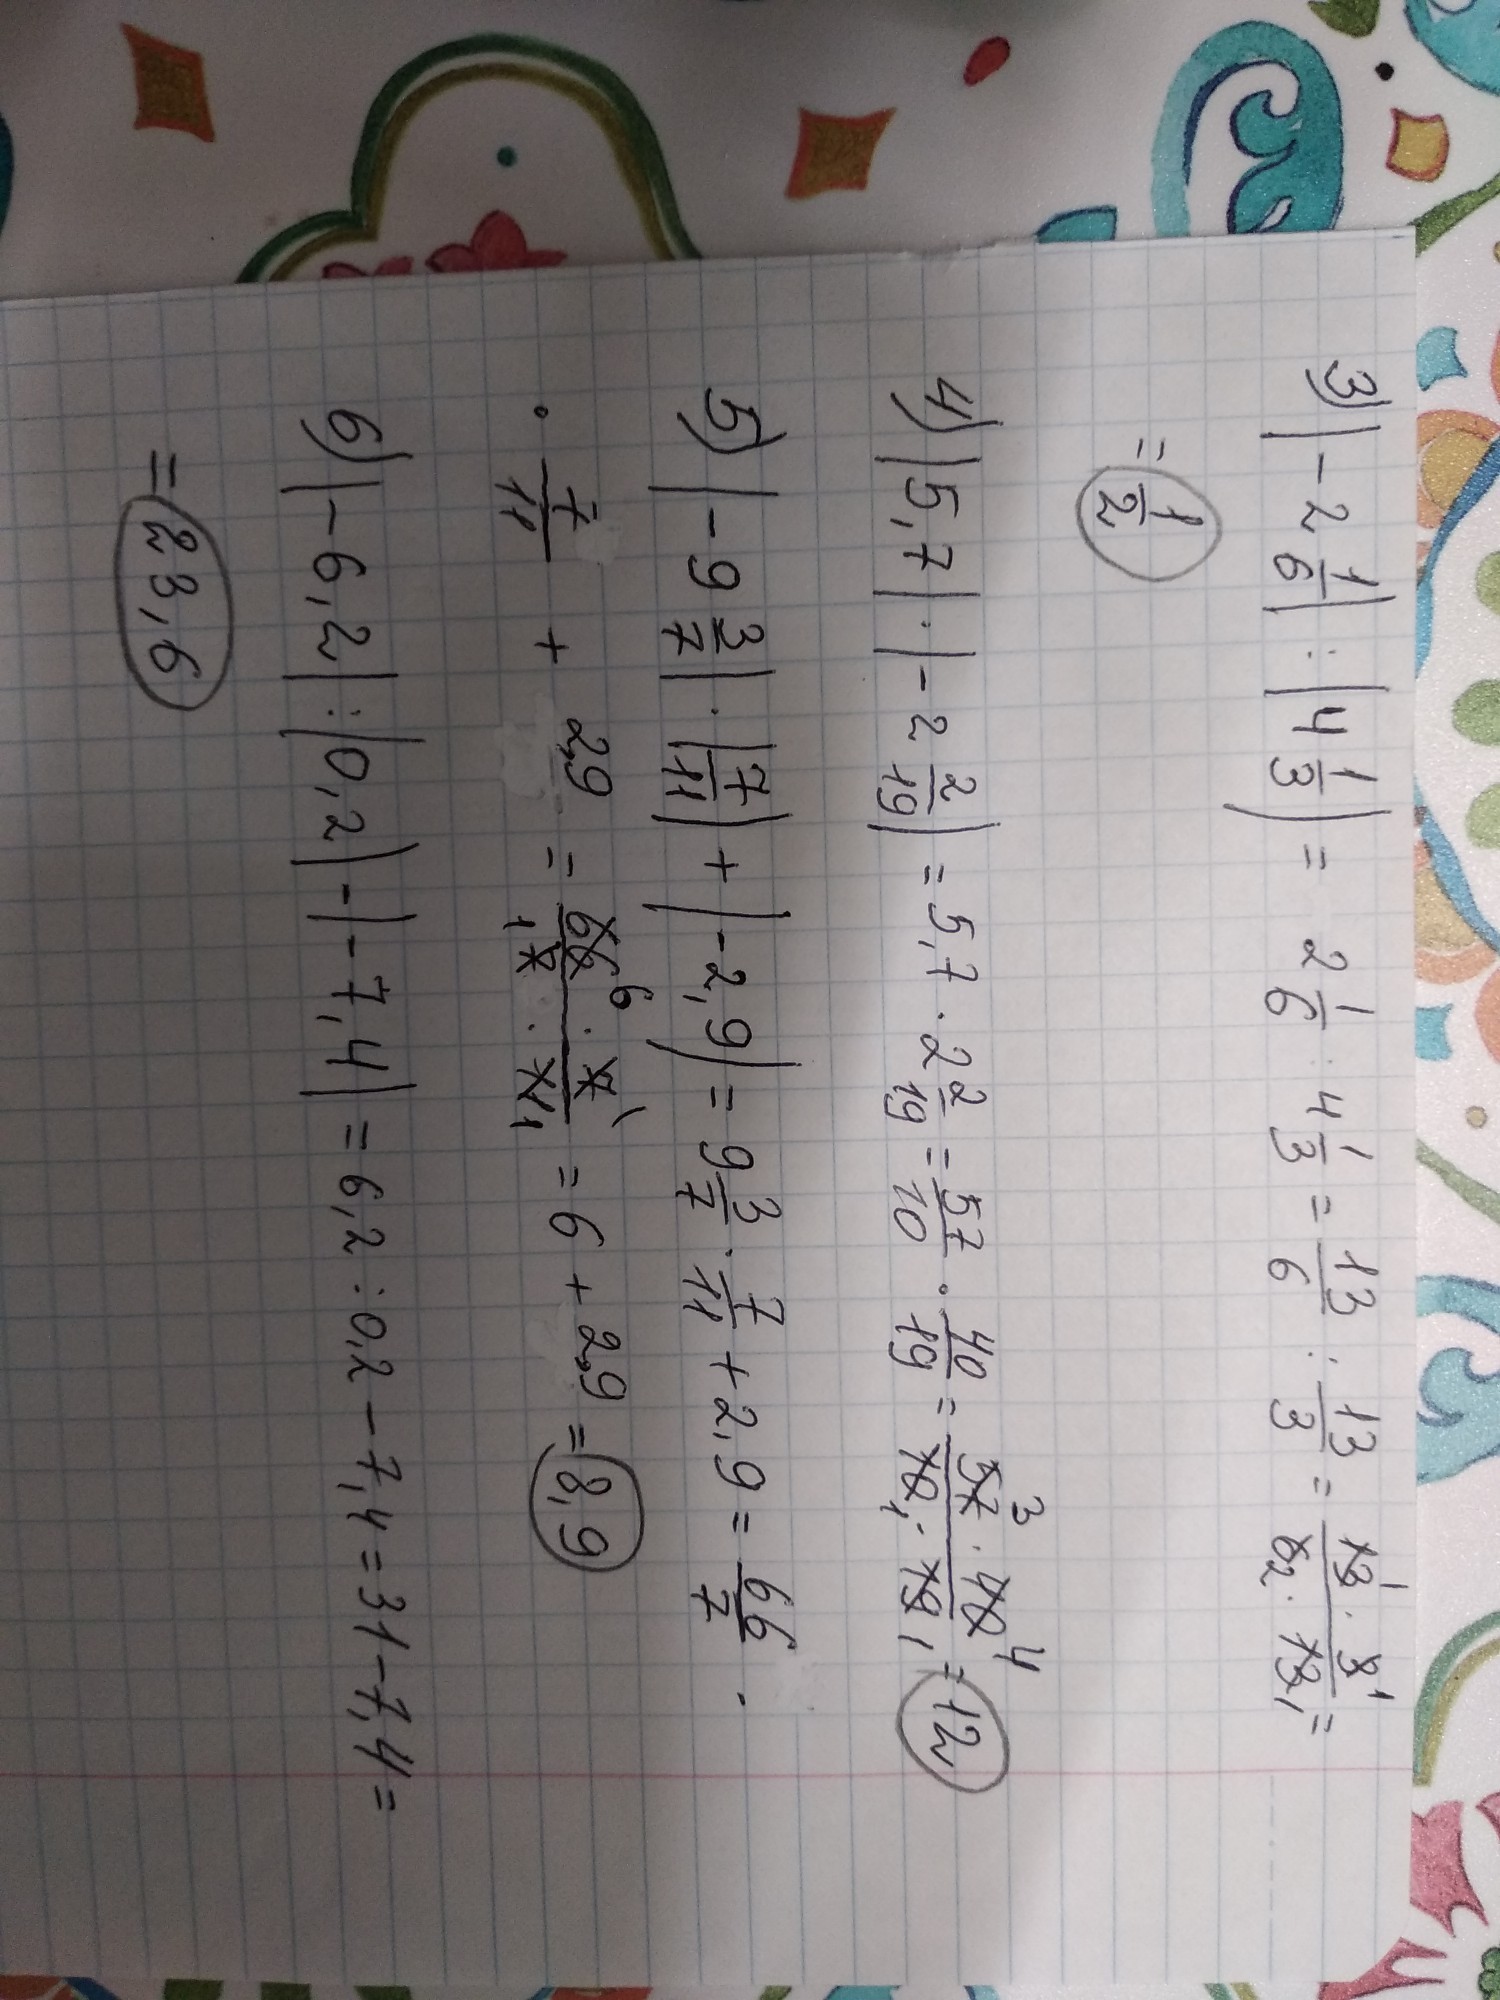 3) |-2 1/6| : |4 1/3| = 2 1/6 : 4 1/3 = 13/6 : 13/3 = 13 1 · 3 1/6 2 · 13 1 =
= 1/2
4) |5,7| · |-2 2/19| = 5,7 · 2 2/19 = 57/10 · 40/19 = 57 3 · 40 4/10 1 · 19 1 = 12
5) |-9 3/7| · |7/11| + |-2,9| = 9 3/7 · 7/11 + 2,9 = 66/7 ·
· 7/11 + 2,9 = 66 6 · 7 1/1 7 · 11 1 = 6 + 2,9 = 8,9
6) |-6,2| : |0,2| - |-7,4| = 6,2 : 0,2 - 7,4 = 31 - 7,4 =
= 23,6